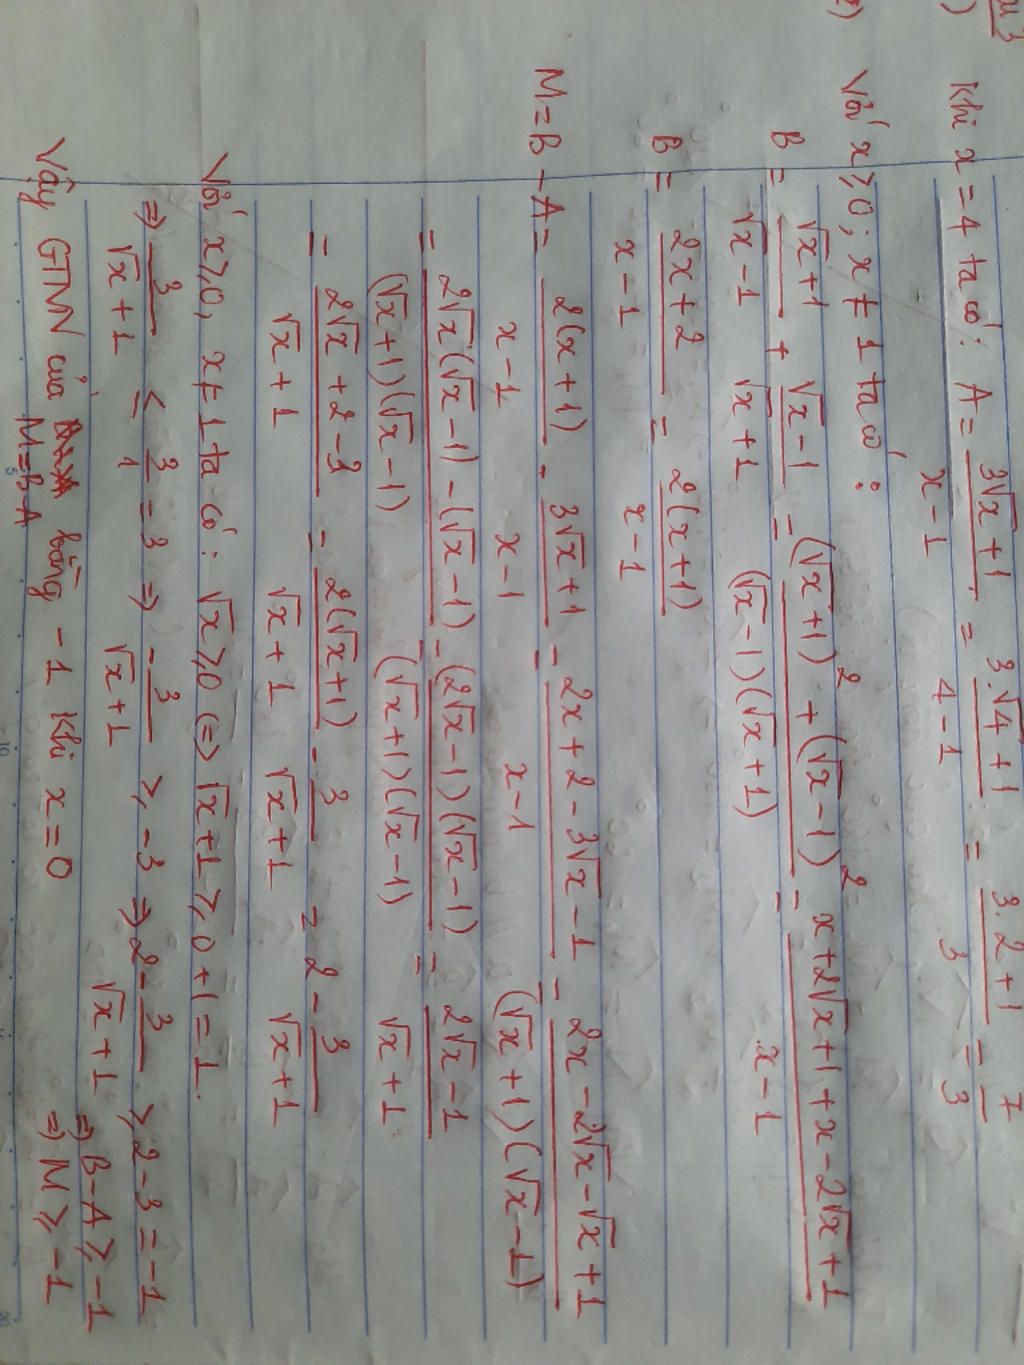 Khi x = 4 ta có: A = (3√x + 1)/(x - 1) = (3.√4 + 1)/(4 - 1) = (3.2 + 1)/3 = 7/3
Với x ≥ 0; x ≠ 1 ta có:
B = (√x + 1)/(√x - 1) + (√x - 1)/(√x + 1) = ((√x + 1)² + (√x - 1)²)/((√x - 1)(√x + 1)) = (x + 2√x + 1 + x - 2√x + 1)/(x - 1)
B = (2x + 2)/(x - 1) = (2(x + 1))/(x - 1)
M = B - A = (2(x + 1))/(x - 1) - (3√x + 1)/(x - 1) = (2x + 2 - 3√x - 1)/(x - 1) = (2x - 2√x - √x + 1)/((√x + 1)(√x - 1))
= (2√x(√x - 1) - (√x - 1))/((√x + 1)(√x - 1)) = ((2√x - 1)(√x - 1))/((√x + 1)(√x - 1)) = (2√x - 1)/(√x + 1)
= (2√x + 2 - 3)/(√x + 1) = (2(√x + 1))/(√x + 1) - 3/(√x + 1) = 2 - 3/(√x + 1)
Với x ≥ 0, x ≠ 1 ta có: √x ≥ 0 (=) √x + 1 ≥ 0 + 1 = 1.
=) 3/(√x + 1) ≤ 3/1 = 3 =) - 3/(√x + 1) ≥ -3 =) 2 - 3/(√x + 1) ≥ 2 - 3 = -1
=) B - A ≥ -1
=) M ≥ -1
Vậy GTNN của M = B - A bằng -1 Khi x = 0